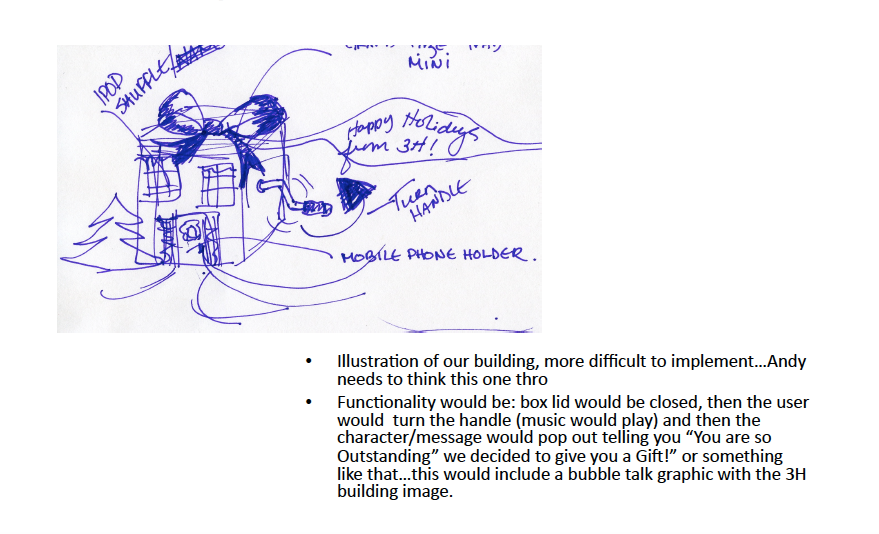 IPOD
SHUFFLE
MINI
Happy Holidays
from 3H!
TURN
HANDLE
MOBILE PHONE HOLDER.
• Illustration of our building, more difficult to implement…Andy
needs to think this one thro
• Functionality would be: box lid would be closed, then the user
would turn the handle (music would play) and then the
character/message would pop out telling you “You are so
Outstanding” we decided to give you a Gift!” or something
like that…this would include a bubble talk graphic with the 3H
building image.